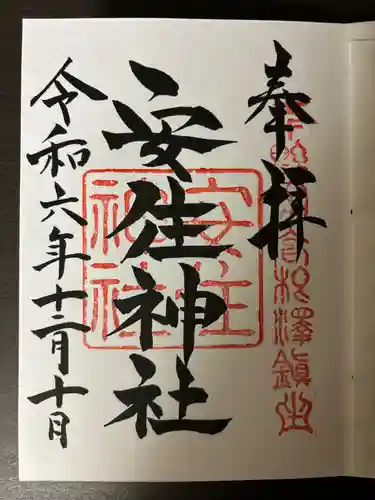 奉拝
澤鎮
安住神社
安住神社
令和六年十二月十日